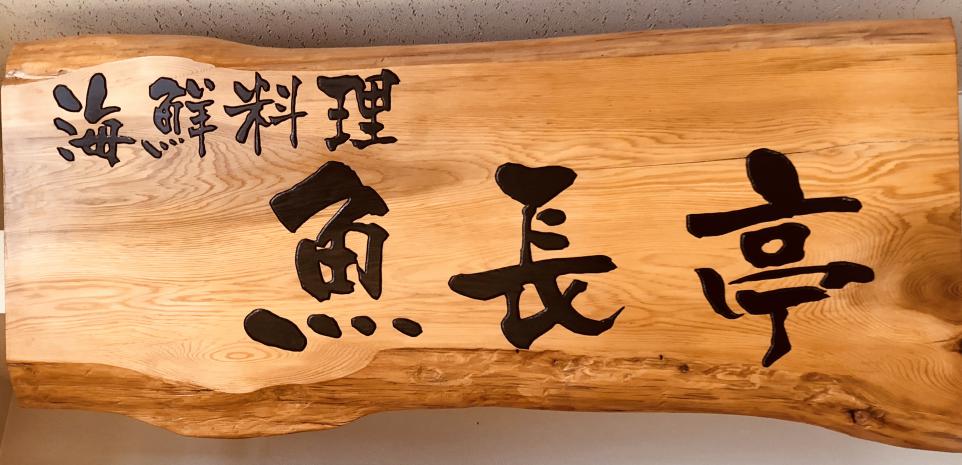 海鮮料理
魚長亭